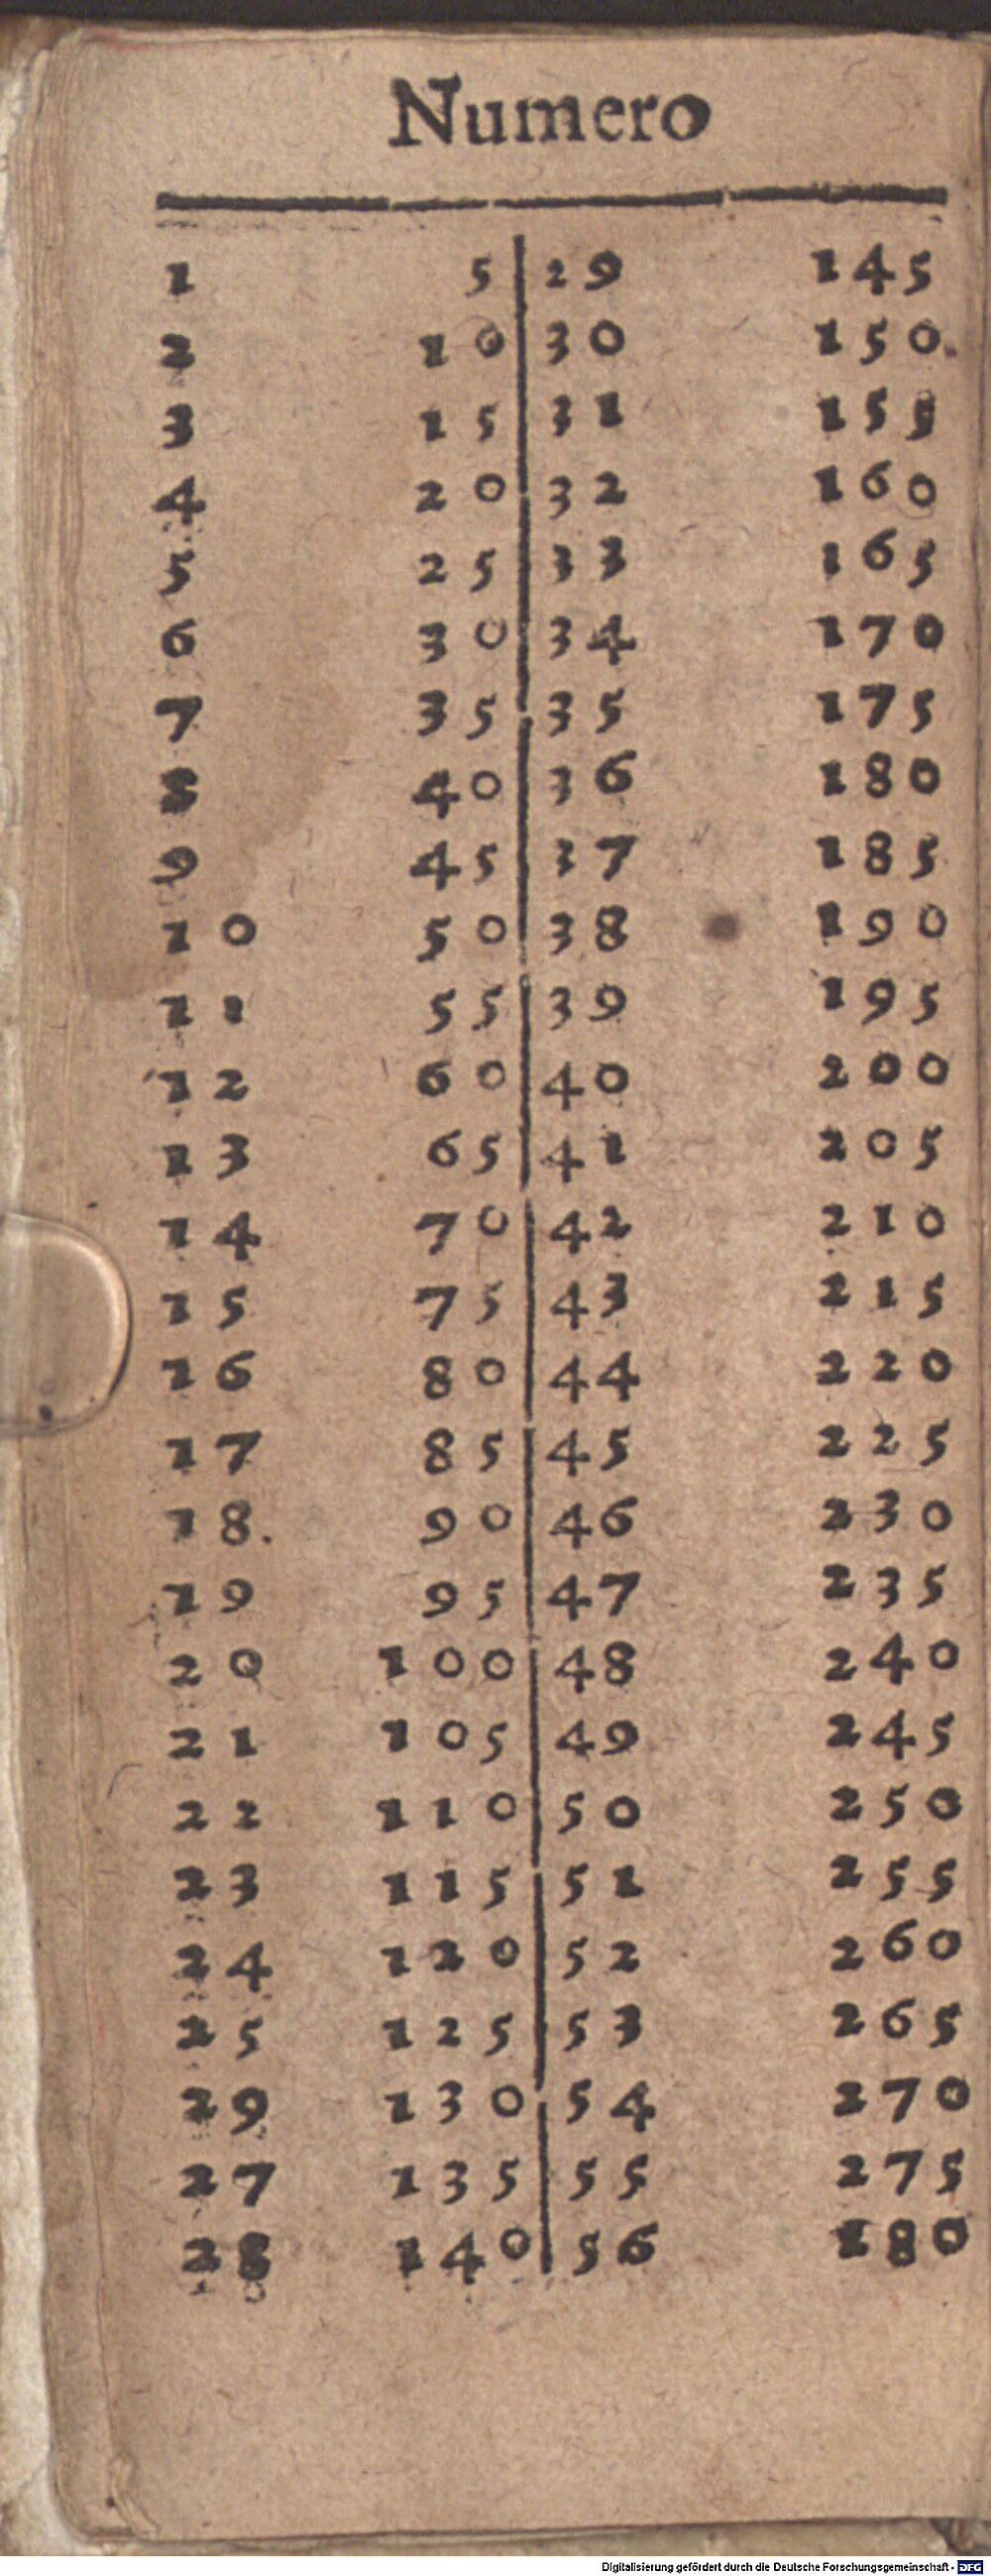 Numero
1 5 29 145
2 10 30 150.
3 15 31 155
4 20 32 160
5 25 33 165
6 30 34 170
7 35 35 175
8 40 36 180
9 45 37 185
10 50 38 190
11 55 39 195
12 60 40 200
13 65 41 205
14 70 42 210
15 75 43 215
16 80 44 220
17 85 45 225
18. 90 46 230
19 95 47 235
20 100 48 240
21 105 49 245
22 110 50 250
23 115 51 255
24 120 52 260
25 125 53 265
29 130 54 270
27 135 55 275
28 140 56 180
Digitalisierung gefördert durch die Deutsche Forschungsgemeinschaft - DFG